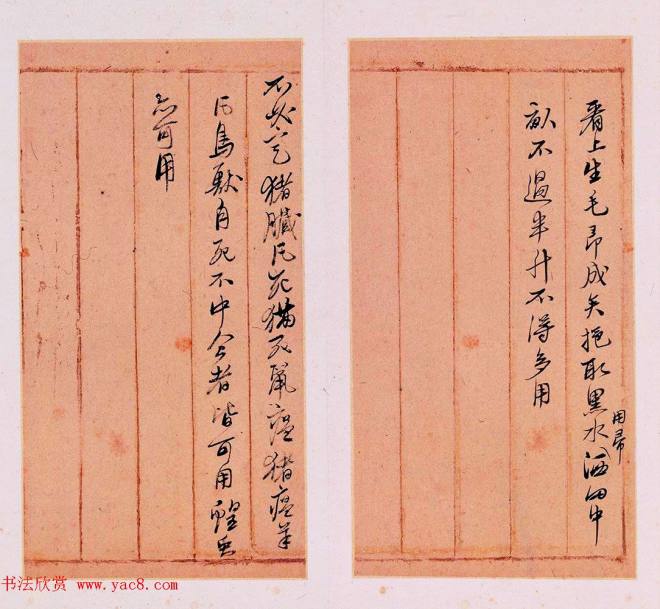 看上生毛即成矣挹取黑水用帚洒田中
畝不過半升不得多用
不必定猪臟凡死猫死鼠瘟猪瘟羊
凡鳥獸自死不中食者皆可用蝗虫
亦可用
书法欣赏 www.yac8.com